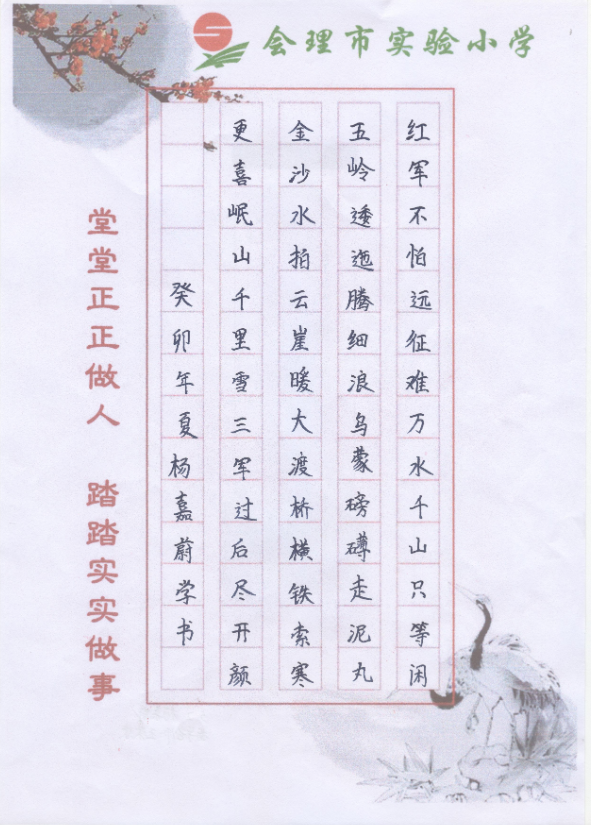 会理市实验小学
红军不怕远征难万水千山只等闲
五岭逶迤腾细浪乌蒙磅礴走泥丸
金沙水拍云崖暖大渡桥横铁索寒
更喜岷山千里雪三军过后尽开颜
癸卯年夏杨嘉蔚学书
堂堂正正做人 踏踏实实做事